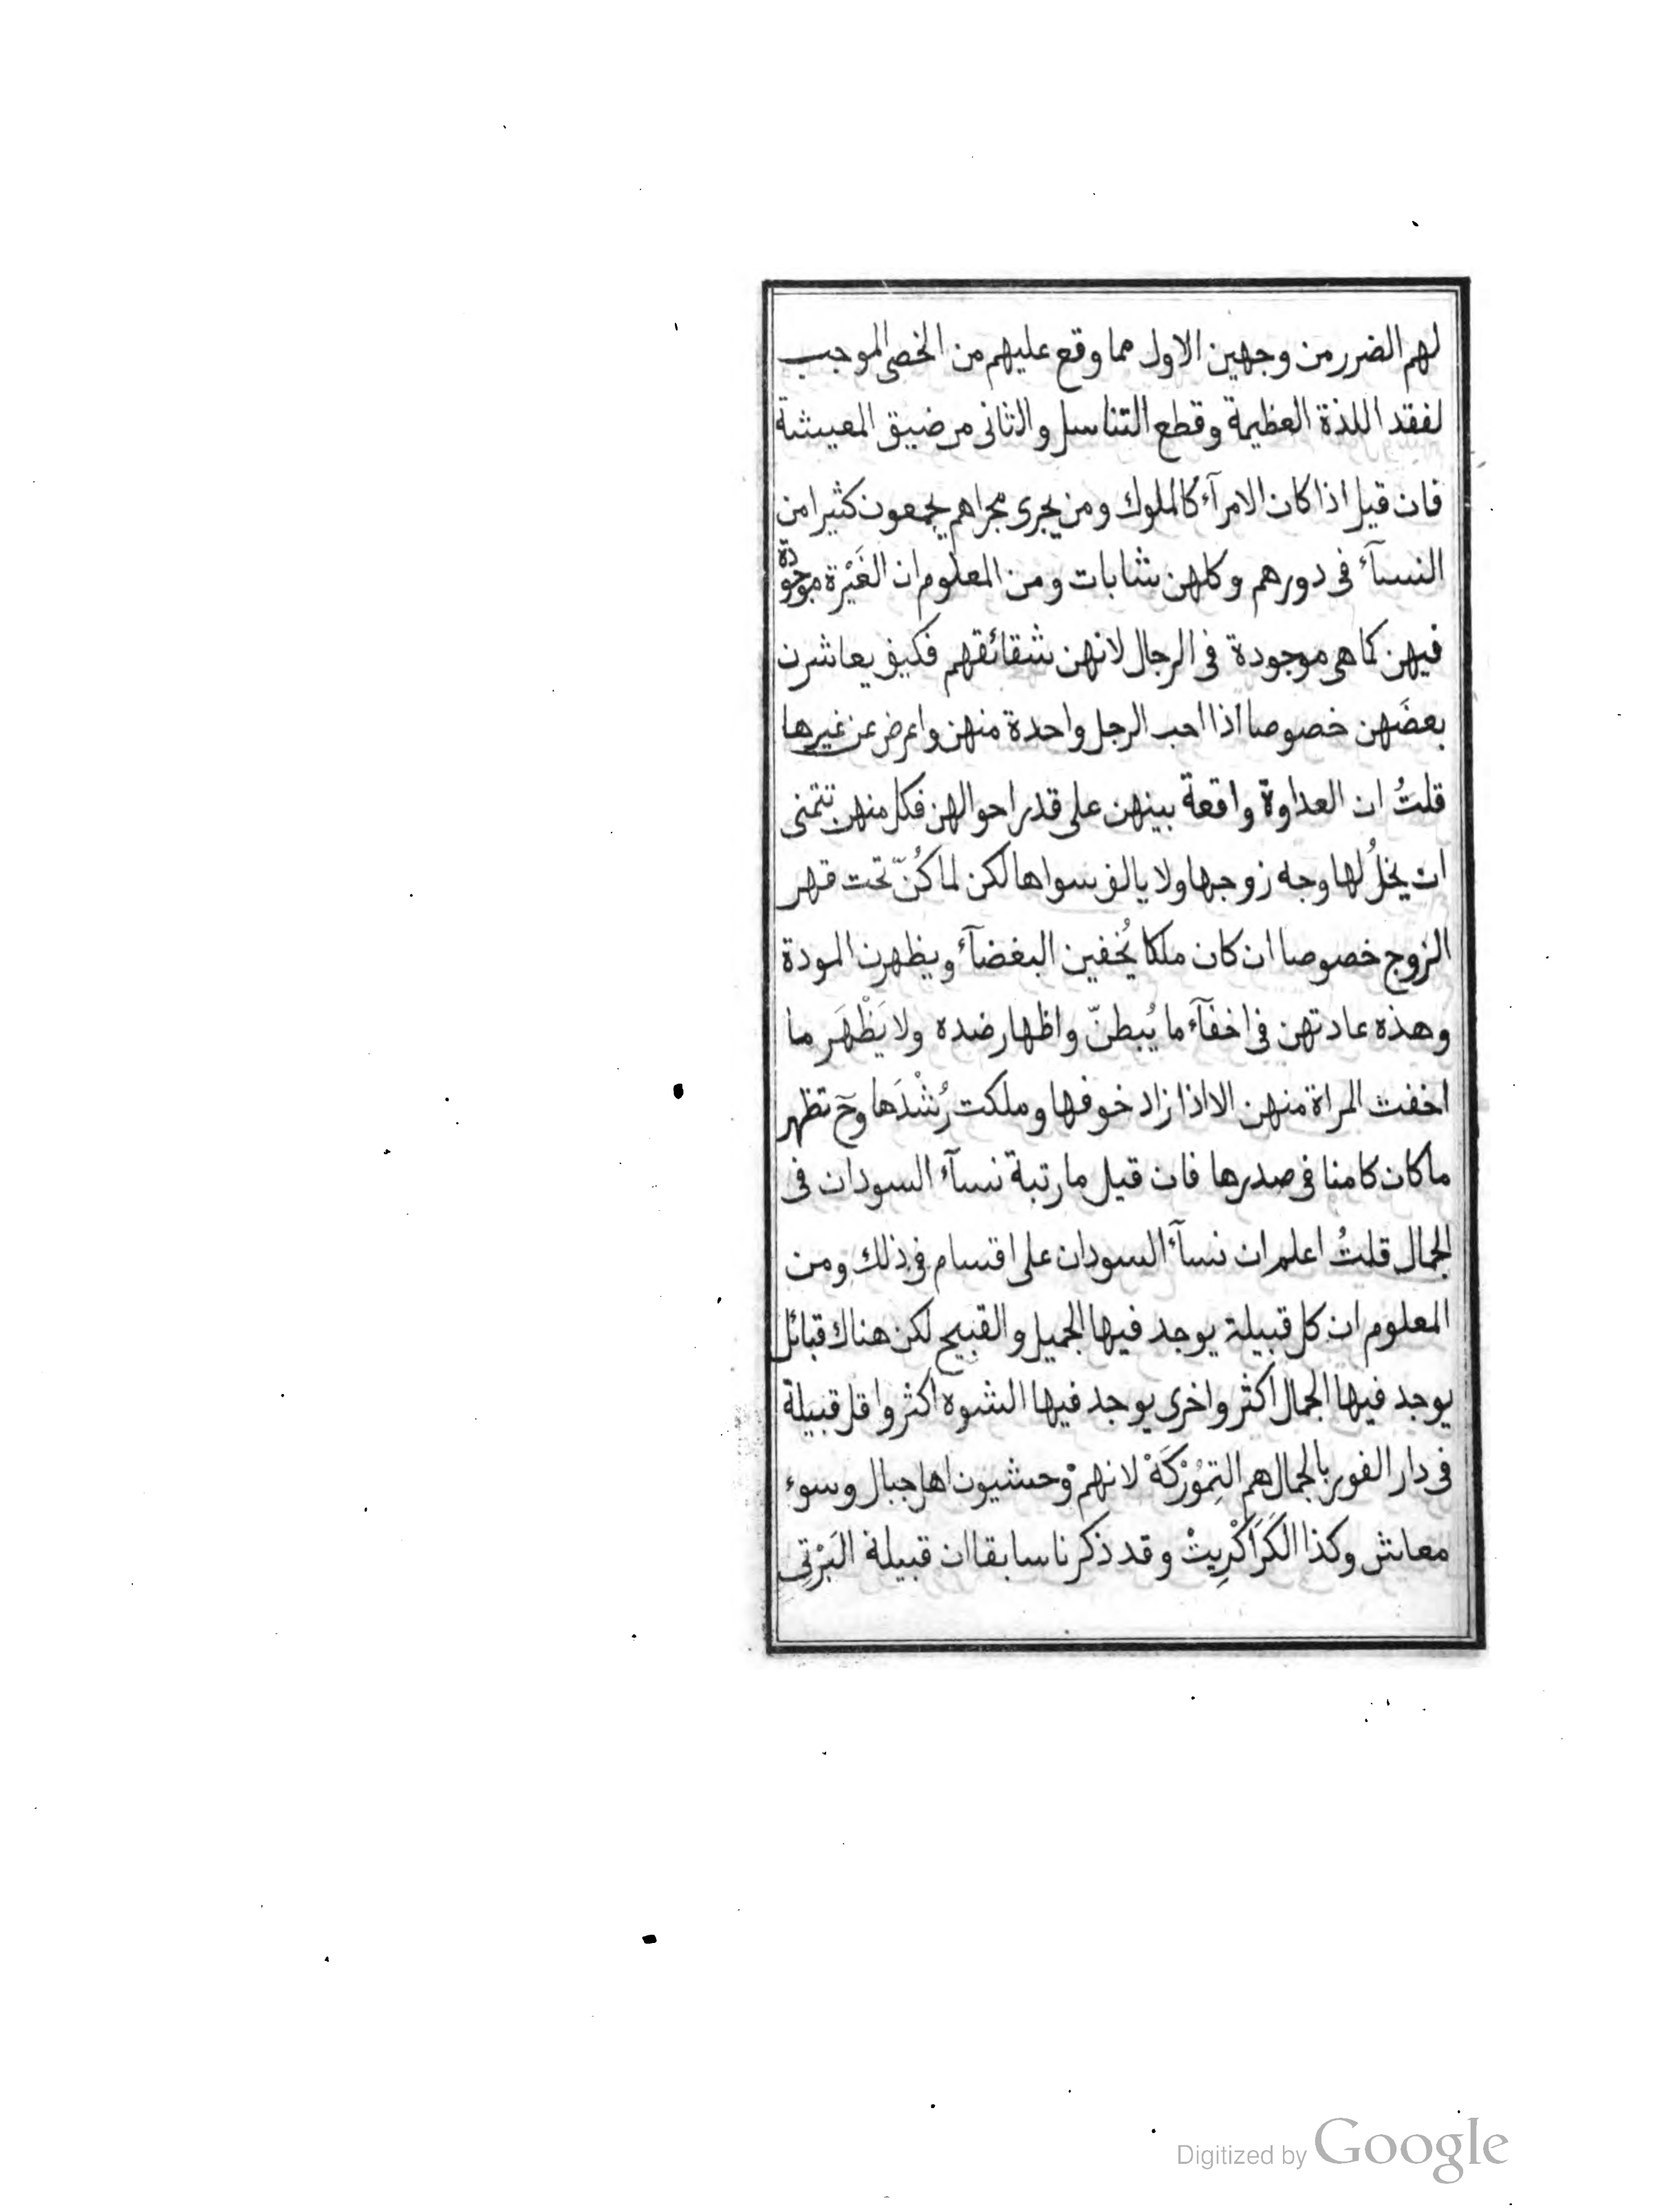 لهم الضرر من وجهين الاول مما وقع عليهم من الخصى الموجب
لفقد اللذة العظيمة وقطع التناسل والثانى من ضيق المعيشة
فان قيل اذا كان الامرآء كالملوك ومن يجرى مجراهم يجمعون كثيرا من
النسآء فى دورهم وكلهن شابات ومن المعلوم ان الغَيْرة موجودة
فيهن كما هى موجودة فى الرجال لانهن شقائقهم فكيف يعاشرن
بعضَهن خصوصا اذا احب الرجل واحدة منهن واعرض عن غيرها
قلتُ ان العداوة واقعة بينهن على قدر احوالهن فكل منهن تتمنى
ان يخلُ لها وجه زوجها ولا يالف سواها لكن لما كُنّ تحت قهر
الزوج خصوصا ان كان ملكا يُخفين البغضآء ويظهرن المودة
وهذه عادتهن فى اخفآء ما يُبطنّ واظهار ضده ولا يَظْهَر ما
اخفت المراة منهن الا اذا زاد خوفها وملكت رُشْدَها وح تظهر
ما كان كامنا فى صدرها فان قيل ما رتبة نسآء السودان فى
الجمال قلتُ اعلم ان نسآء السودان على اقسام فى ذلك ومن
المعلوم ان كل قبيلة يوجد فيها الجميل والقبيح لكن هناك قبائل
يوجد فيها الجمال اكثر واخرى يوجد فيها الشوه اكثر واقل قبيلة
فى دار الفور بالجمال هم التِمُوْرْكَهْ لانهم وحشيون اهل جبال وسوء
معاش وكذا الكَرَاكْرِيتْ وقد ذكرنا سابقا ان قبيلة البَرْتِى
Digitized by Google